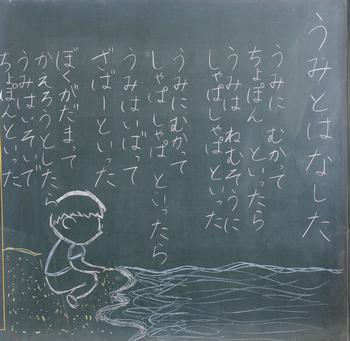 うみとはなした
うみに むかって
ちょぽん といったら
うみは ねむそうに
しゃぱしゃぱといった
うみにむかって
しゃぱ しゃぱ といったら
うみはいばって
ざばーといった
ぼくがだまって
かえろうとしたら
うみはいそいで
ちょぽんといった